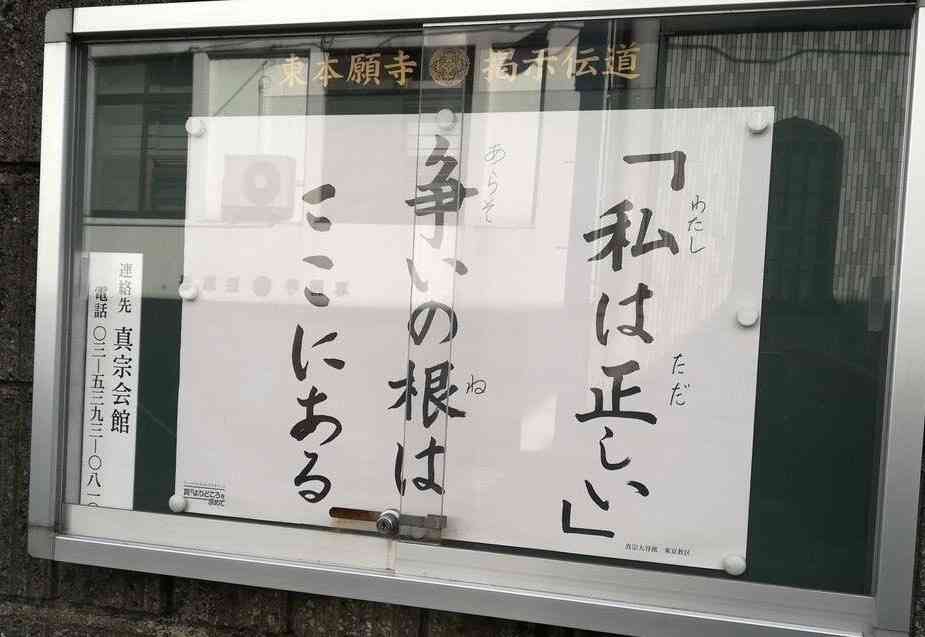 東本願寺 掲示伝道
「私は正しい」
わたし
ただ
争いの根は
あらそ
ね
ここにある
連絡先 真宗会館
電話 〇三―五三九三―〇八一〇
真宗大谷派 東京教区